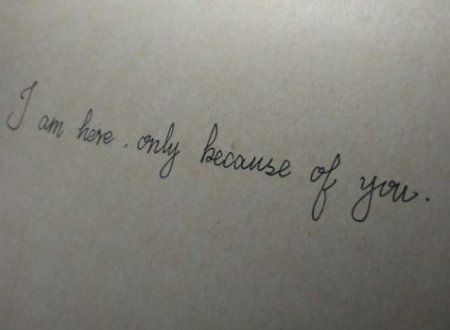 I am here. only because of you.